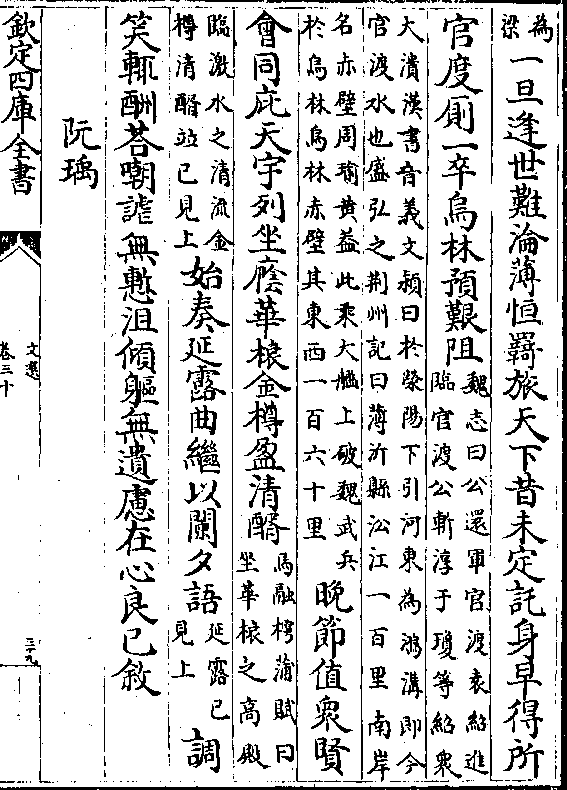 為梁一旦逢世難淪薄恒羇旅天下昔未定託身早得所
官度廁一卒烏林預艱阻魏志曰公還軍官渡袁紹進臨官渡公斬淳于瓊等紹衆
大潰漢書音義文穎曰於滎陽下引河東為鴻溝即今官渡水也盛弘之荆州記曰薄沂縣㳂江一百里南岸
名赤壁周瑜黄葢此乘大艦上破魏武兵於烏林烏林赤壁其東西一百六十里晚節值衆賢
會同庇天宇列坐廕華榱金樽盈清醑馬融樗蒲賦曰坐華榱之高殿
臨激水之清流金樽清醑竝已見上始奏延露曲繼以闌夕語延露已見上調
笑輒酬荅嘲謔無慙沮傾軀無遺慮在心良已敘
阮瑀
欽定四庫全書
文選
卷三十
三十九